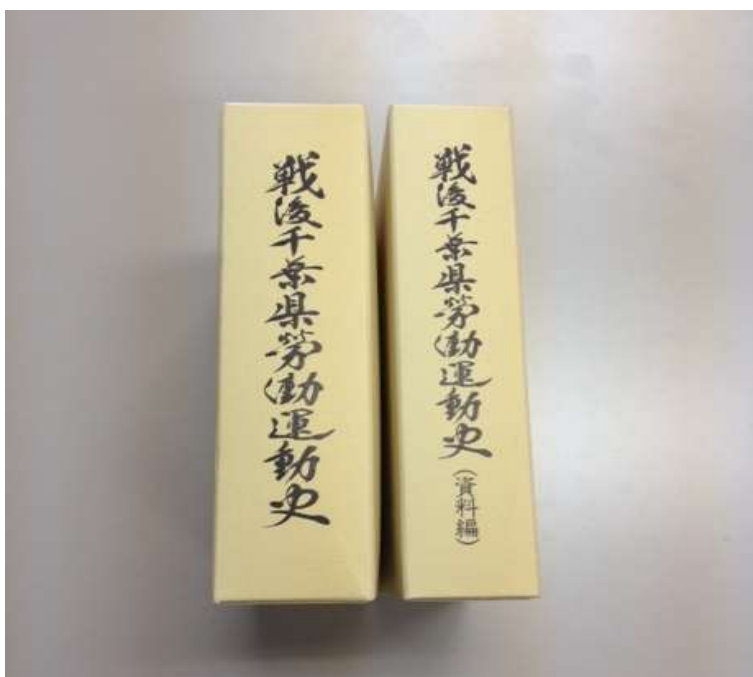 戦後千葉県労働運動史
戦後千葉県労働運動史
(資料編)